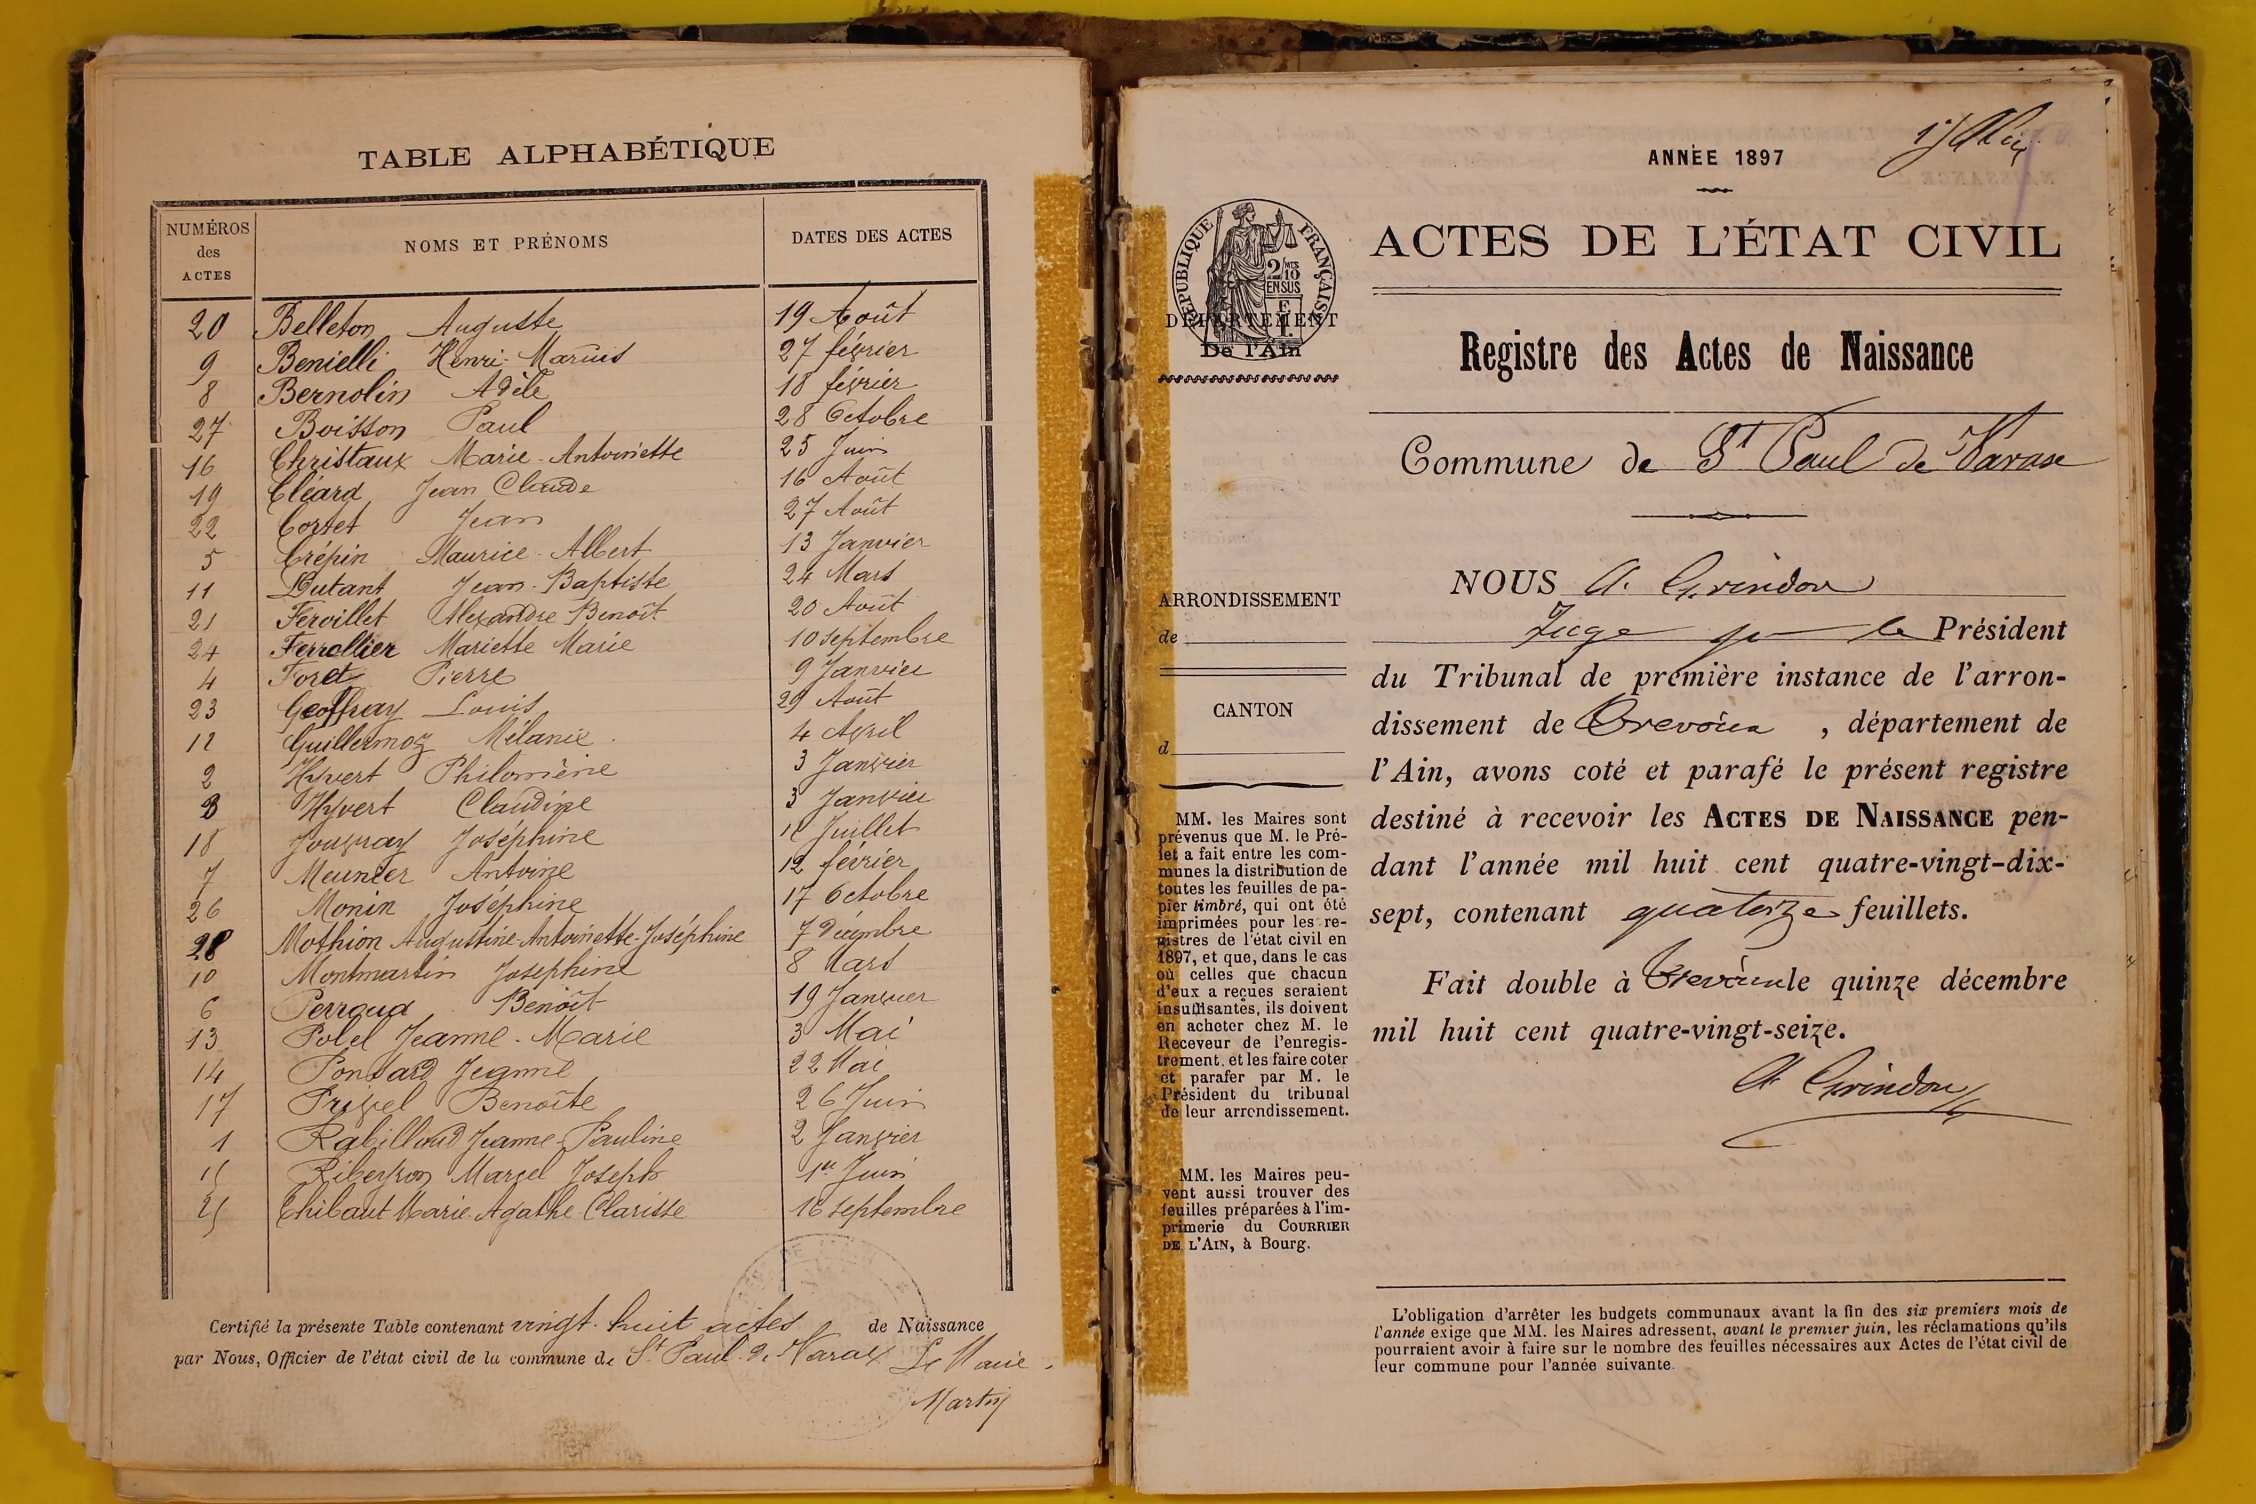 TABLE ALPHABÉTIQUE
NUMÉROS des ACTES NOMS ET PRÉNOMS DATES DES ACTES
20 Belleton Auguste 19 Août
9 Benielli Henri-Marius 27 février
8 Bernolin Adèle 18 février
27 Boisson Paul 28 Octobre
16 Christaux Marie-Antoinette 25 Juin
19 Cléard Jean Claude 16 Août
22 Cortet Jean 27 Août
5 Crépin Maurice-Albert 13 Janvier
11 Dutant Jean-Baptiste 24 Mars
21 Fervillet Alexandre Benoît 20 Août
24 Ferrollier Mariette Marie 10 septembre
4 Foret Pierre 9 Janvier
23 Geoffray Louis 29 Août
12 Guillermoz Mélanie 4 Avril
2 Hyvert Philomène 3 Janvier
3 Hyvert Claudine 3 Janvier
18 Jouvray Joséphine Juillet
7 Meunier Antoine 12 février
26 Monin Joséphine 17 Octobre
28 Mothion Augustine-Antoinette-Joséphine 7 Décembre
10 Montmartin Josephine 8 Mars
6 Perroud Benoît 19 Janvier
13 Polel Jeanne-Marie 3 Mai
14 Ponsard Jeanne 22 Mai
17 Privel Benoîte 26 Juin
1 Rabilloud Jeanne-Pauline 2 Janvier
15 Ribeyron Marcel Joseph 1er Juin
25 Thibaut Marie-Agathe Clarisse 16 septembre
Certifié la présente Table contenant vingt-huit actes de Naissance
par Nous, Officier de l'état civil de la commune de St Paul de Varax Le Maire
Martin
ANNÉE 1897
RÉPUBLIQUE FRANÇAISE
2/10 MES
EN SUS
DÉPARTEMENT
De l'Ain
ACTES DE L'ÉTAT CIVIL
Registre des Actes de Naissance
Commune de St Paul de Varax
ARRONDISSEMENT
de
CANTON
d
MM. les Maires sont
prévenus que M. le Pré-
fet a fait entre les com-
munes la distribution de
toutes les feuilles de pa-
pier timbré, qui ont été
imprimées pour les re-
gistres de l'état civil en
1897, et que, dans le cas
où celles que chacun
d'eux a reçues seraient
insuffisantes, ils doivent
en acheter chez M. le
Receveur de l'enregis-
trement, et les faire coter
et parafer par M. le
Président du tribunal
de leur arrondissement.
MM. les Maires peu-
vent aussi trouver des
feuilles préparées à l'im-
primerie du COURRIER
DE L'AIN, à Bourg.
NOUS A. Grindon
Juge pr le Président
du Tribunal de première instance de l'arron-
dissement de Trévoux, département de
l'Ain, avons coté et parafé le présent registre
destiné à recevoir les ACTES DE NAISSANCE pen-
dant l'année mil huit cent quatre-vingt-dix-
sept, contenant quatorze feuillets.
Fait double à Trévoux le quinze décembre
mil huit cent quatre-vingt-seize.
A. Grindon
L'obligation d'arrêter les budgets communaux avant la fin des six premiers mois de
l'année exige que MM. les Maires adressent, avant le premier juin, les réclamations qu'ils
pourraient avoir à faire sur le nombre des feuilles nécessaires aux Actes de l'état civil de
leur commune pour l'année suivante.